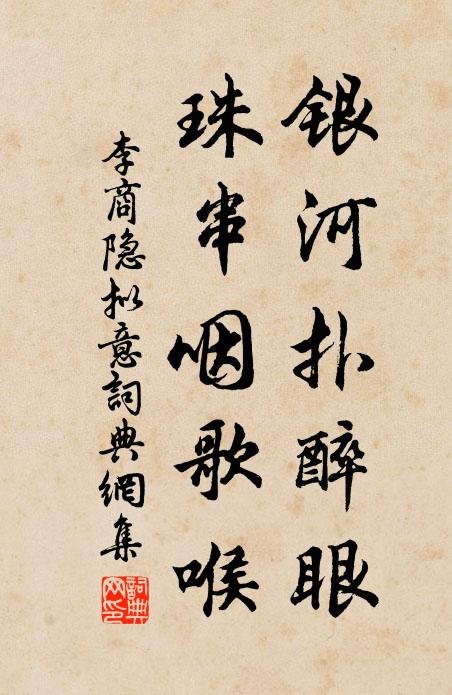 银河扑醉眼
珠串咽歌喉
李商隐拟意詞典網集
詞典网印